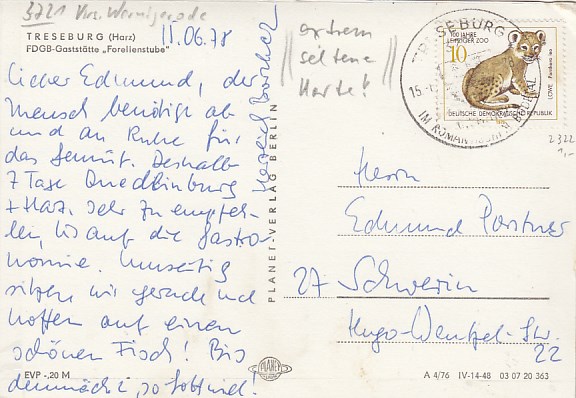 3721 Krs. Wernigerode
TRESEBURG (Harz)
FDGB-Gaststätte „Forellenstube"
11.06.78
Lieber Edmund, der
Mensch benötigt ab
und an Ruhe für
das Gemüt. Deshalb
7 Tage Quedlinburg
+ Harz. Sehr zu empfeh-
len, bis auf die Gastro-
nomie. Umseitig
sitzen wir gerade und
hoffen auf einen
schönen Fisch! Bis
demnächst,
Herzlich
EVP -,20 M
PLANET-VERLAG BERLIN
PLANET
extrem
seltene
Karte!
TRESEBURG
15.
IM ROMANTISCHEN BODETAL
100 JAHRE
LEIPZIGER ZOO
10
LÖWE Panthera leo
DEUTSCHE DEMOKRATISCHE REPUBLIK
2322
1,-
Herrn
Edmund
27 Schwerin
Hugo-Wenzel-Str.
22
A 4/76 IV-14-48 03 07 20 363